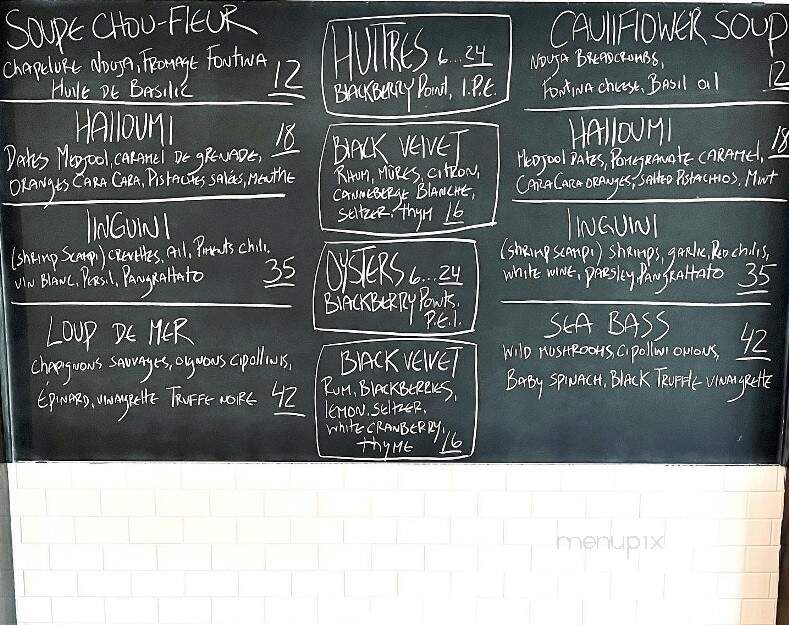 SOUPE CHOU-FLEUR
CHAPELURE NDUJA, FROMAGE FONTINA
HUILE DE BASILIC 12
HALLOUMI 18
DATES MEDJOOL, CARAMEL DE GRENADE,
ORANGES CARA CARA, PISTACHES SALÉES, MENTHE
LINGUINI
(SHRIMP SCAMPI) CREVETTES, AIL, PIMENTS CHILI,
VIN BLANC, PERSIL, PANGRATTATO 35
LOUP DE MER
CHAPIGNONS SAUVAGES, OIGNONS CIPOLLINIS,
ÉPINARD, VINAIGRETTE TRUFFE NOIRE 42
HUÎTRES 6...24
BLACKBERRY POINT, I.P.E.
BLACK VELVET
RHUM, MÛRES, CITRON,
CANNEBERGE BLANCHE,
SELTZER, THYM 16
OYSTERS 6...24
BLACKBERRY POINTS,
P.E.I.
BLACK VELVET
RUM, BLACKBERRIES,
LEMON, SELTZER,
WHITE CRANBERRY,
THYME 16
CAULIFLOWER SOUP
NDUJA BREADCRUMBS,
FONTINA CHEESE, BASIL OIL 12
HALLOUMI 18
MEDJOOL DATES, POMEGRANATE CARAMEL,
CARA CARA ORANGES, SALTED PISTACHIOS, MINT
LINGUINI
(SHRIMP SCAMPI) SHRIMPS, GARLIC, RED CHILIS,
WHITE WINE, PARSLEY PANGRATTATO 35
SEA BASS
WILD MUSHROOMS, CIPOLLINI ONIONS, 42
BABY SPINACH, BLACK TRUFFLE VINAIGRETTE
menupix